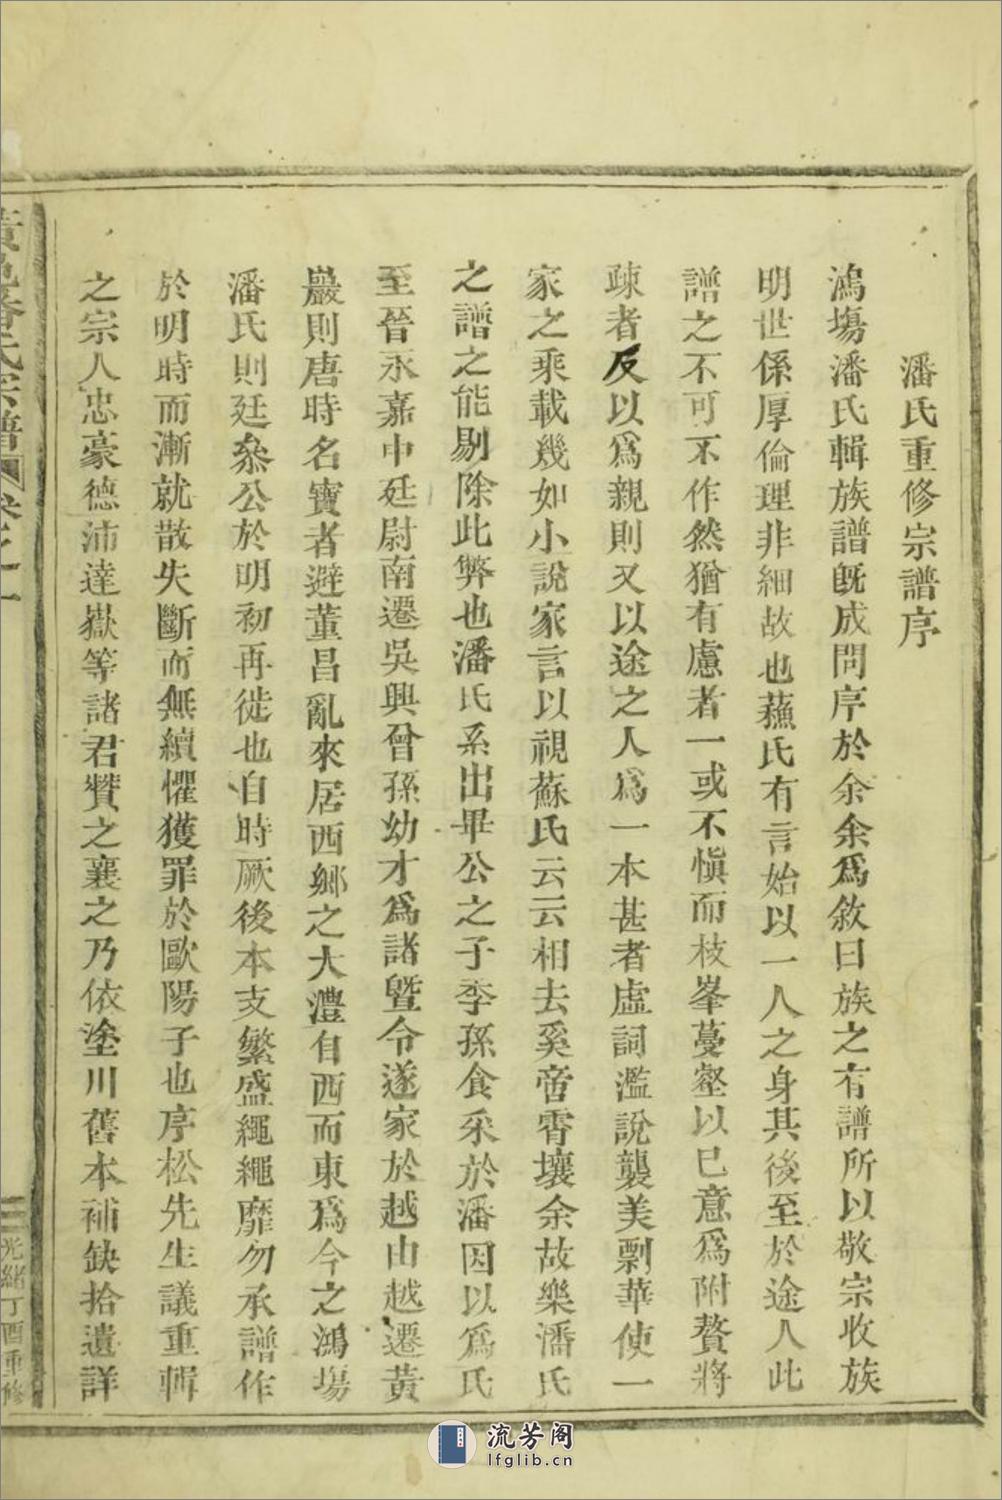 潘氏重修宗譜序
鴻塲潘氏輯族譜旣成問序於余余爲敘曰族之有譜所以敬宗收族
明世係厚倫理非細故也蘓氏有言始以一人之身其後至於途人此
譜之不可不作然猶有慮者一或不愼而枝峯蔓壑以已意爲附贅將
疎者反以爲親則又以途之人爲一本甚者虛詞濫說襲美剽華使一
家之乘載幾如小說家言以視蘇氏云云相去奚啻霄壤余故樂潘氏
之譜之能剔除此弊也潘氏系出畢公之子季孫食采於潘因以爲氏
至晉永嘉中廷尉南遷吳興曾孫幼才爲諸曁令遂家於越由越遷黃
巖則唐時名寶者避董昌亂來居西鄉之大澧自西而東爲今之鴻塲
潘氏則廷叅公於明初再徙也自時厥後本支繁盛繩繩靡勿承譜作
於明時而漸就散失斷而無續懼獲罪於歐陽子也序松先生議重輯
之宗人忠豪德沛達嶽等諸君贊之襄之乃依塗川舊本補缺拾遺詳
黃邑潘氏宗譜 卷之一
光緒丁酉重修
流芳阁
lfglib.cn